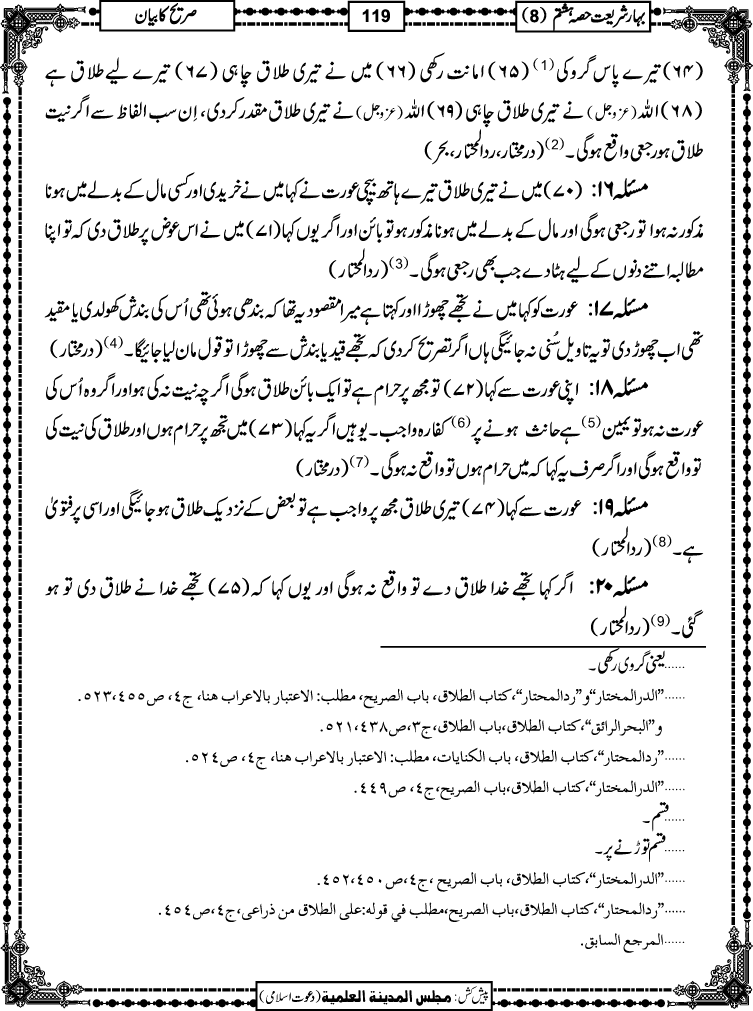 بہار شریعت حصہ ہشتم (8)
119
صریح کا بیان
(۶۴) تیرے پاس گرو کی (1) (۶۵) امانت رکھی (۶۶) میں نے تیری طلاق چاہی (۶۷) تیرے لیے طلاق ہے
(۶۸) اللہ (عزوجل) نے تیری طلاق چاہی (۶۹) اللہ (عزوجل) نے تیری طلاق مقدر کردی، اِن سب الفاظ سے اگر نیت
طلاق ہو رجعی واقع ہوگی۔ (2) (درمختار، ردالمحتار، بحر)
مسئلہ ۱۶: (۷۰) میں نے تیری طلاق تیرے ہاتھ بیچی عورت نے کہا میں نے خریدی اور کسی مال کے بدلے میں ہونا
مذکور نہ ہوا تو رجعی ہوگی اور مال کے بدلے میں ہونا مذکور ہو تو بائن اور اگر یوں کہا (۷۱) میں نے اس عوض پر طلاق دی کہ تو اپنا
مطالبہ اتنے دنوں کے لیے ہٹا دے جب بھی رجعی ہوگی۔ (3) (ردالمحتار)
مسئلہ ۱۷: عورت کو کہا میں نے تجھے چھوڑا اور کہتا ہے میرا مقصود یہ تھا کہ بندھی ہوئی تھی اُس کی بندش کھولدی یا مقید
تھی اب چھوڑ دی تو یہ تاویل سُنی نہ جائیگی ہاں اگر تصریح کردی کہ تجھے قید یا بندش سے چھوڑا تو قول مان لیا جائیگا۔ (4) (درمختار)
مسئلہ ۱۸: اپنی عورت سے کہا (۷۲) تو مجھ پر حرام ہے تو ایک بائن طلاق ہوگی اگرچہ نیت نہ کی ہو اور اگر وہ اُس کی
عورت نہ ہو تو یمین (5) ہے حانث ہونے پر (6) کفارہ واجب۔ یوہیں اگر یہ کہا (۷۳) میں تجھ پر حرام ہوں اور طلاق کی نیت کی
تو واقع ہوگی اور اگر صرف یہ کہا کہ میں حرام ہوں تو واقع نہ ہوگی۔ (7) (درمختار)
مسئلہ ۱۹: عورت سے کہا (۷۴) تیری طلاق مجھ پر واجب ہے تو بعض کے نزدیک طلاق ہو جائیگی اور اسی پر فتویٰ
ہے۔ (8) (ردالمحتار)
مسئلہ ۲۰: اگر کہا تجھے خدا طلاق دے تو واقع نہ ہوگی اور یوں کہا کہ (۷۵) تجھے خدا نے طلاق دی تو ہو
گئی۔ (9) (ردالمحتار)
......یعنی گروی رکھی۔
......”الدرالمختار“و”ردالمحتار“، کتاب الطلاق، باب الصریح، مطلب: الاعتبار بالاعراب ھنا، ج٤، ص٤٥٥،٥٢٣.
و”البحرالرائق“،کتاب الطلاق،باب الطلاق،ج٣،ص٤٣٨،٥٢١.
......”ردالمحتار“، کتاب الطلاق، باب الکنایات، مطلب: الاعتبار بالاعراب ھنا، ج٤، ص٥٢٤.
......”الدرالمختار“،کتاب الطلاق،باب الصریح،ج٤، ص٤٤٩.
......قسم۔
......قسم توڑنے پر۔
......”الدرالمختار“،کتاب الطلاق، باب الصریح ،ج٤،ص٤٥٠،٤٥٢.
......”ردالمحتار“،کتاب الطلاق،باب الصریح،مطلب في قوله:على الطلاق من ذراعی،ج٤،ص٤٥٤.
......المرجع السابق.
پیش کش: مجلس المدینة العلمیة (دعوت اسلامی)